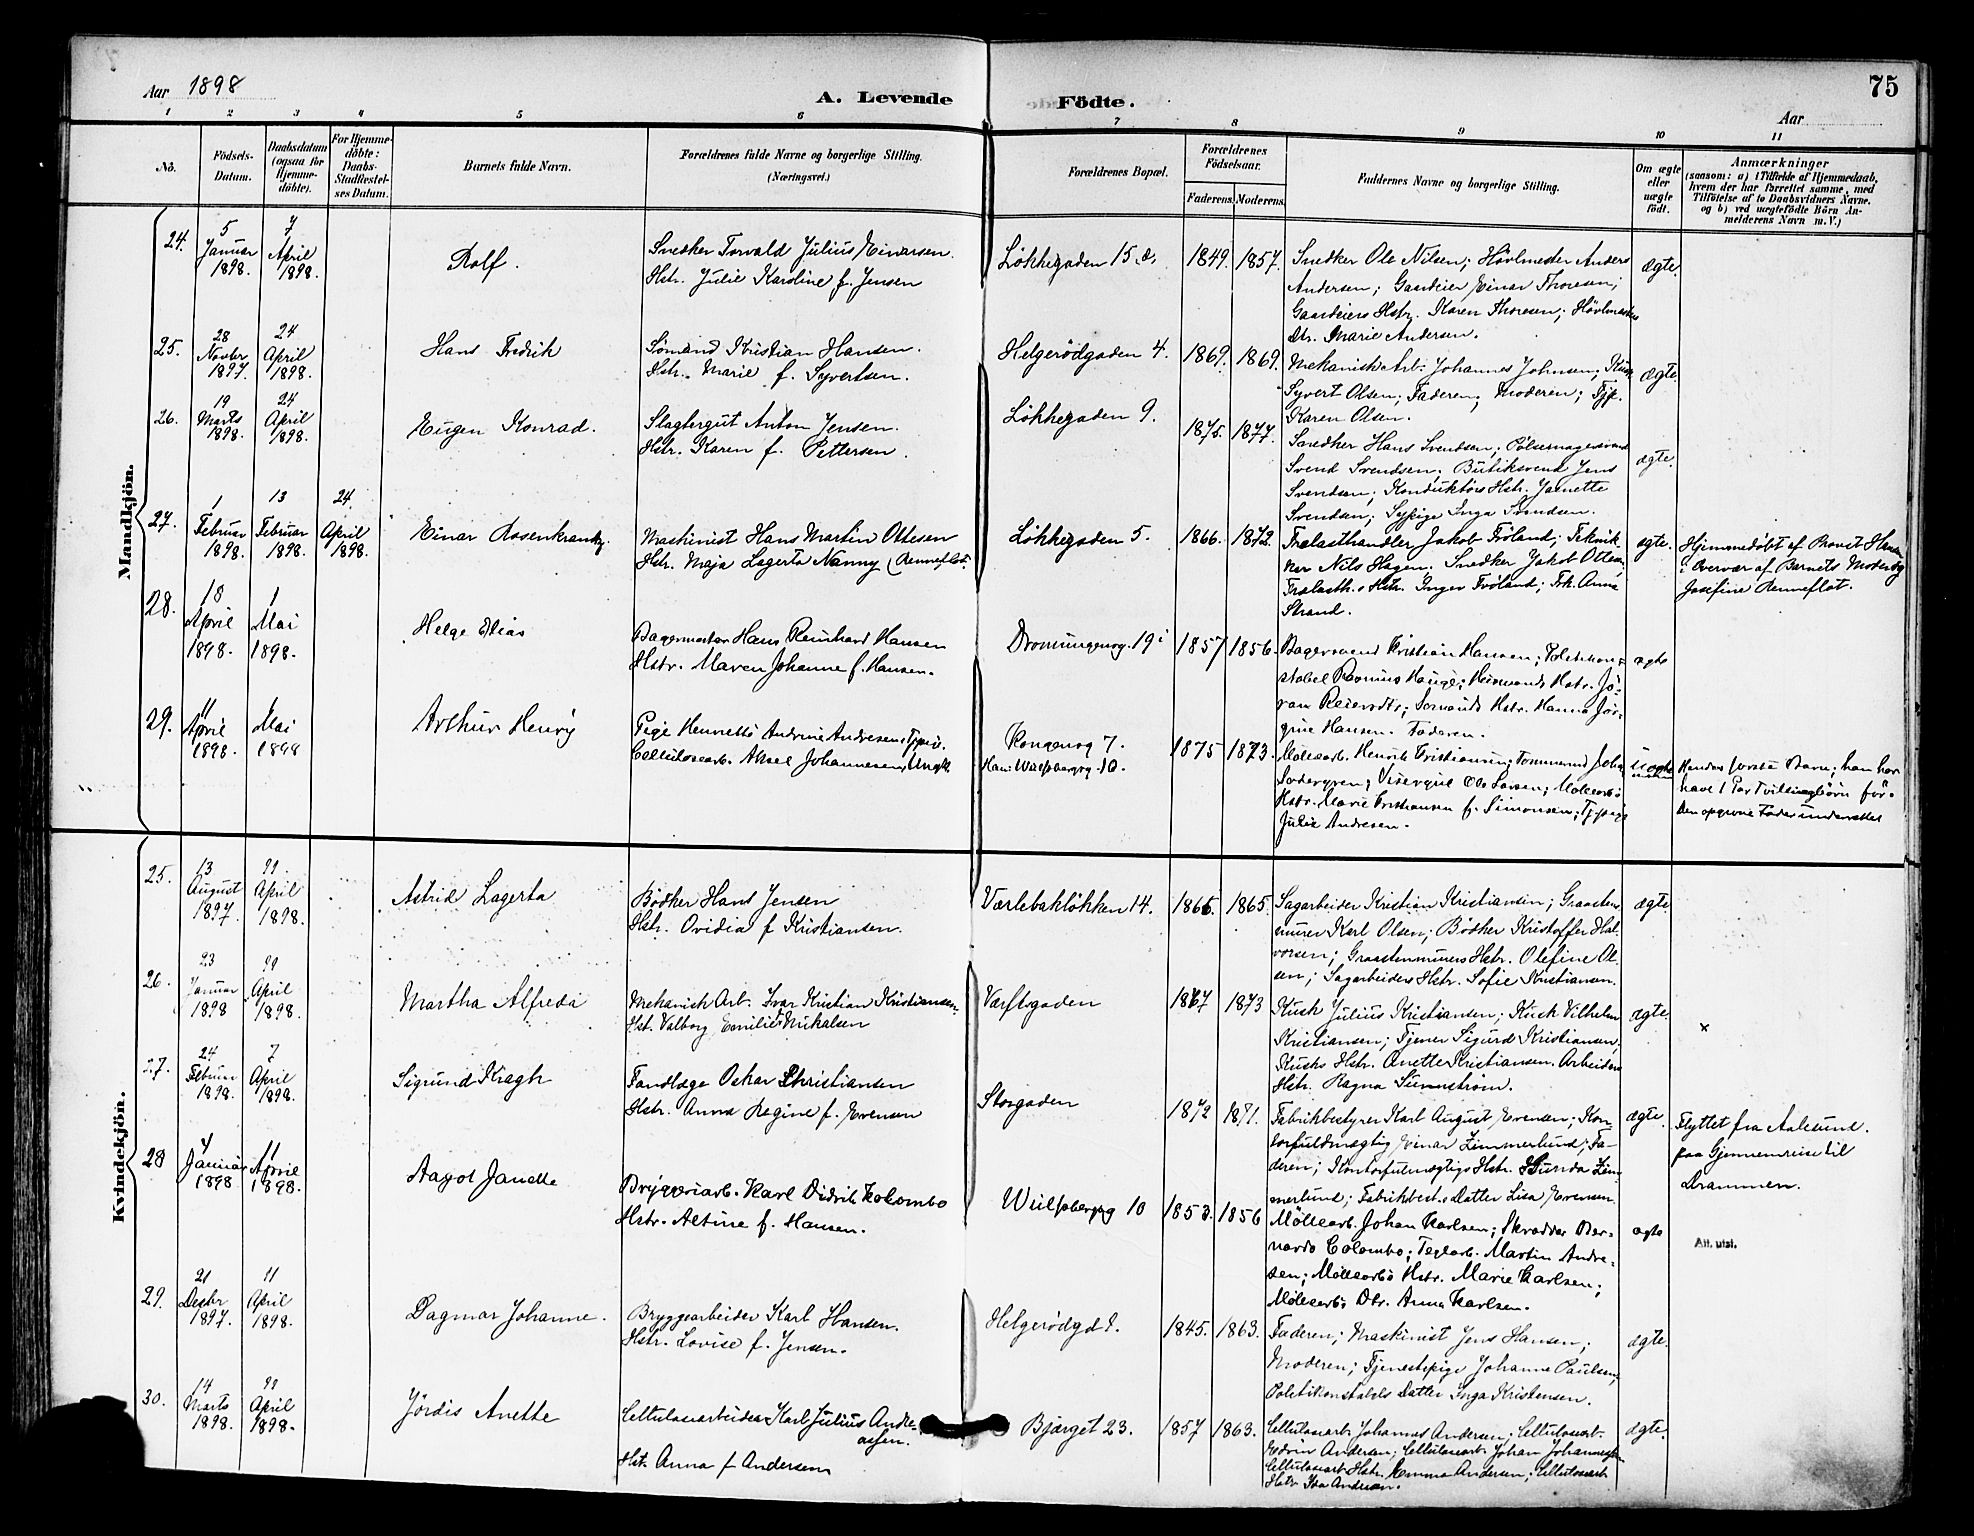 75
Aar 1898
A. Levende Födte.
Aar
1 2 3 4 5 6 7 8 9 10 11
No.
Födsels-Datum.
Daabsdatum (ogsaa for Hjemme-döbte).
For Hjemme-döbte: Daabs-Stadfæstel-ses Datum.
Barnets fulde Navn.
Forældrenes fulde Navne og borgerlige Stilling. (Næringsvei.)
Forældrenes Bopæl.
Forældrenes Födselsaar.
Faderens. Moderens.
Faddernes Navne og borgerlige Stilling.
Om ægte eller uægte födt.
Anmærkninger
(saasom: a) i Tilfælde af Hjemmedaab,
hvem der har forrettet samme, med
Tilföielse af to Daabsvidners Navne.
og b) ved uægtefödte Börn An-
melderens Navn m. V.)
Mandkjön.
24.
5 Januar 1898.
7 April 1898.
Rolf.
Snedker Torvald Julius Einarsen.
Hstr. Julie Karoline f. Jensen
Løkkegaden 15.a.
1849. 1857.
Snedker Ole Nilsen; Høvlmester Anders
Andersen; Gaardeier Einar Thoresen;
Gaardeiers Hstr. Karen Thoresen; Høvlmesters
Dtr. Marie Andersen.
ægte.
25.
28 Novbr 1897.
24 April 1898.
Hans Fredrik
Sømand Kristian Hansen.
Hstr. Marie f. Syvertsen.
Helgerödgaden 4.
1869. 1869.
Mekanisk Arb. Johannes Johnsen; Kusk
Syvert Olsen; Faderen; Moderen; Tjp.
Karen Olsen.
ægte.
26.
19 Marts 1898.
24 April 1898.
Eugen Konrad.
Slagtergut Anton Jensen.
Hstr. Karen f. Pettersen.
Løkkegaden 9.
1875. 1877.
Snedker Hans Svendsen; Pølsemagersvend
Svend Svendsen; Butiksvend Jens
Svendsen; Konduktørs Hstr. Janette
Svendsen; Sypige Inga Svendsen.
ægte.
27.
1 Februar 1898.
13 Februar 1898.
24 April 1898.
Einar Rosenkrantz.
Maskinist Hans Martin Ottesen
Hstr. Maja Lagerta Nanny f. Renneflot.
Løkkegaden 5.
1866. 1872.
Trælasthandler Jakob Frøland; Teknik
ker Nils Hagen; Snedker Jakob Ottesen;
Trælasth.s Hstr. Inger Frøland; Frk. Anna
Strand.
ægte.
Hjemmedøbt af Provst Hansen
i Overvær af Barnets Moder og
Josefine Renneflot.
28.
18 April 1898.
1 Mai 1898.
Helge Elias
Bagermester Hans Reinhard Hansen
Hstr. Maren Johanne f. Hansen.
Dronningensg. 19 i
1857 1856.
Bagersvend Kristian Hansen; Politikon-
stabel Rasmus Hauge; Hstr. Jø-
Sømands Hstr. Hanna Jør-
gine Hansen. Faderen.
ægte
29.
11 April 1898.
1 Mai 1898
Arthur Henry
Pige Henriette Andrine Andresen, Tjpige.
Cellulosearb. Aksel Johannesen, Ungk.
Kongensg 7.
Han: Wulfsbergsg. 10.
1875 1873.
Møllearb. Henrik Kristiansen; Tømmermd John
Ole Larsen; Møllearbs
Hstr. Marie Kristiansen f. Simonsen; Tjpige
Julie Andresen.
uægte
Hendes første Barn; han har
havt 1 Par Tvillingbørn før.
Den opgivne Fader underrettet
Kvindekjön.
25.
13 August 1897.
11 April 1898.
Astrid Lagerta
Bødker Hans Jensen
Hstr. Ovidia f Kristiansen.
Værlebakløkken 14.
1866. 1865.
Sagarbeider Kristian Kristiansen; Graastens
murer Karl Olsen; Bødker Kristoffer Hal-
vorsen; Graastenmurers Hstr. Olefine Ol-
sen; Sagarbeiders Hstr. Sofie Kristiansen.
ægte
26.
23 Januar 1898
11 April 1898.
Martha Alfreda
Mekanisk Arb. Ivar Kristian Kristiansen.
Hst. Valborg Emilie f. Mikalsen
Værftsgaden
1867 1873
Kusk Julius Kristiansen; Kusk Vilhelm
Kristiansen; Tjener Sigurd Kristiansen,
Kusks Hstr. Anette Kristiansen. Arbeiders
Hstr. Ragna Sunnström.
ægte.
×
27.
24 Februar 1898.
7 April 1898.
Sigrund Kragh
Tandlæge Oskar Christiansen
Hstr. Anna Regine f. Evensen
Storgaden
1872 1871.
Fabrikbestyrer Karl August Evensen; Kon-
torfuldmægtig Einar Zimmerlund; Fa-
deren; Kontorfulmægtigs Hstr. Gunda Zim-
merlund; Fabrikbest.s Datter Lisa Evensen.
ægte.
Flyttet fra Aalesund.
paa Gjennemreise til
Drammen.
28
4 Januar 1898
11 April 1898.
Aagot Janette
Bryggeriarb. Karl Didrik Kolombo
Hstr. Altine f. Hansen.
Wulfsbergsg 10
1853. 1856
Møllearb. Johan Karlsen; Skrædder Ber-
nardo Colombo; Teglarb. Martin Andre-
sen; Møllearbs Hstr. Marie Karlsen;
Møllearbs Dtr. Anna Karlsen.
ægte
Att. utst.
29.
21 Decbr 1897.
11 April 1898.
Dagmar Johanne.
Bryggearbeider Karl Hansen.
Hstr. Lovise f. Jensen.
Helgerödgd 1.
1845. 1863.
Faderen; Maskinist Jens Hansen;
Moderen; Tjenestepige Johanne Paulsen;
Politikonstabels Datter Inga Kristensen.
ægte.
30.
14 Marts 1898.
11 April 1898.
Jördis Anette
Cellulosearbeider Karl Julius Andre-
assen.
Hstr. Anna f Andersen
Bjerget 23.
1857 1863.
Cellulosearb. Johannes Andersen; Cellulosearb.
Edvin Andersen; Cellulosearb. Johan Johannessen
Cellulosearb Hstr. Emma Andersen; Cellulosearb
Hstr Ida Andersen.
ægte.